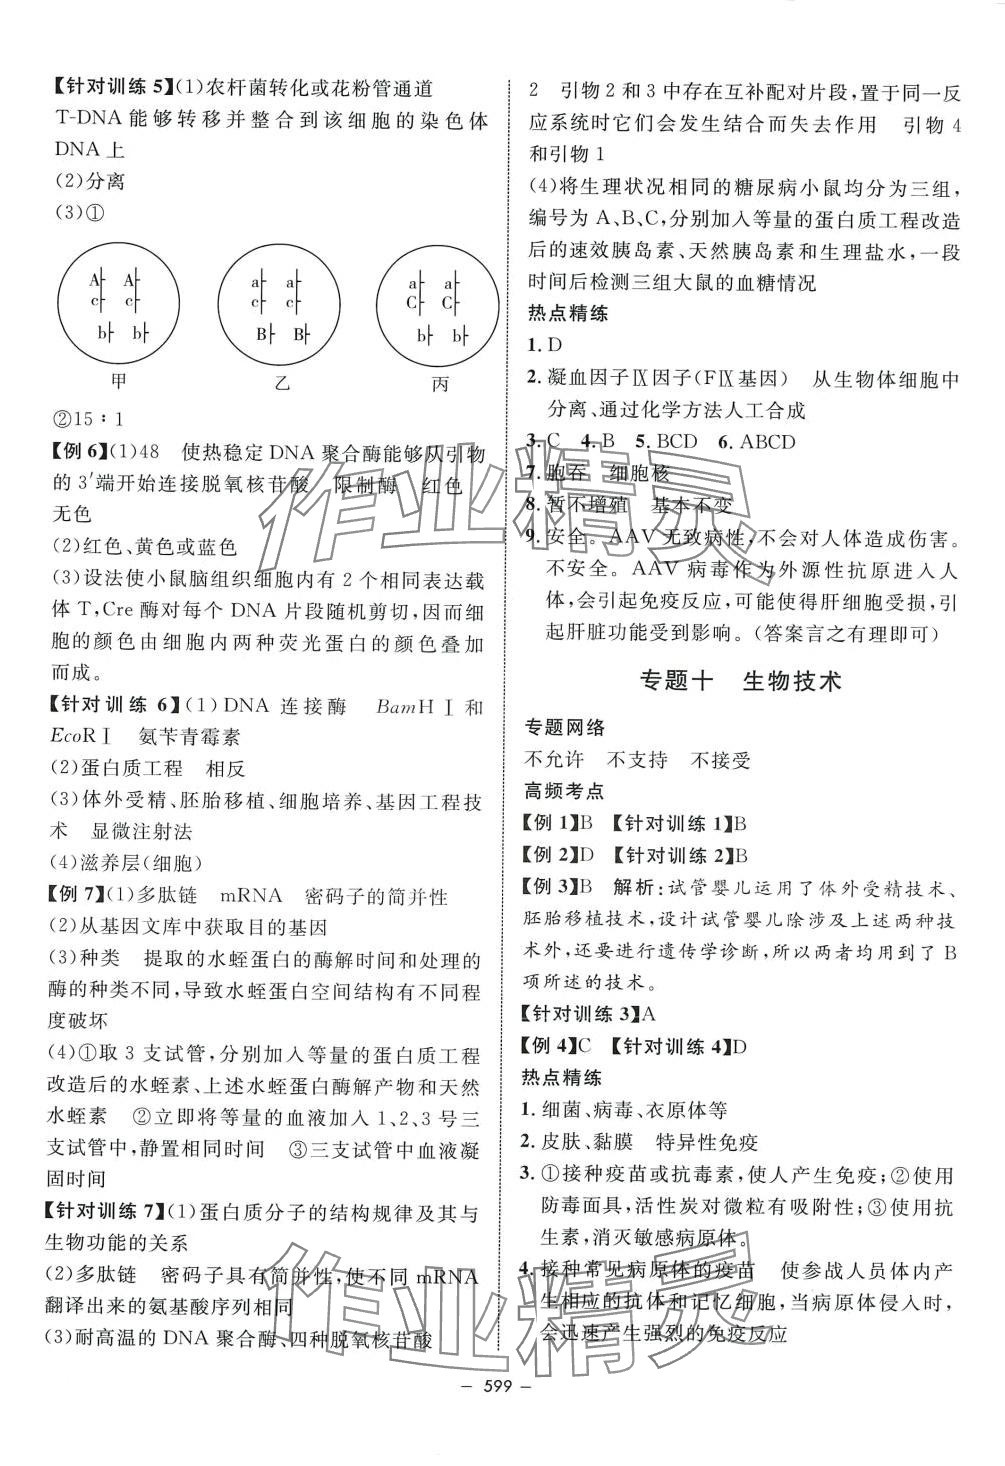 【针对训练 5】(1)农杆菌转化或花粉管通道
T-DNA 能够转移并整合到该细胞的染色体
DNA 上
(2)分离
(3)①
A A a a a a
c c c c C C
b b B B b b
甲 乙 丙
②15∶1
【例 6】(1)48 使热稳定 DNA 聚合酶能够从引物
的 3′端开始连接脱氧核苷酸 限制酶 红色
无色
(2)红色、黄色或蓝色
(3)设法使小鼠脑组织细胞内有 2 个相同表达载
体 T,Cre 酶对每个 DNA 片段随机剪切,因而细
胞的颜色由细胞内两种荧光蛋白的颜色叠加
而成。
【针对训练 6】(1)DNA 连接酶 BamHⅠ和
EcoRⅠ 氨苄青霉素
(2)蛋白质工程 相反
(3)体外受精、胚胎移植、细胞培养、基因工程技
术 显微注射法
(4)滋养层(细胞)
【例 7】(1)多肽链 mRNA 密码子的简并性
(2)从基因文库中获取目的基因
(3)种类 提取的水蛭蛋白的酶解时间和处理的
酶的种类不同,导致水蛭蛋白空间结构有不同程
度破坏
(4)①取 3 支试管,分别加入等量的蛋白质工程
改造后的水蛭素、上述水蛭蛋白酶解产物和天然
水蛭素 ②立即将等量的血液加入 1、2、3 号三
支试管中,静置相同时间 ③三支试管中血液凝
固时间
【针对训练 7】(1)蛋白质分子的结构规律及其与
生物功能的关系
(2)多肽链 密码子具有简并性,使不同 mRNA
翻译出来的氨基酸序列相同
(3)耐高温的 DNA 聚合酶、四种脱氧核苷酸
2 引物 2 和 3 中存在互补配对片段,置于同一反
应系统时它们会发生结合而失去作用 引物 4
和引物 1
(4)将生理状况相同的糖尿病小鼠均分为三组,
编号为 A、B、C,分别加入等量的蛋白质工程改造
后的速效胰岛素、天然胰岛素和生理盐水,一段
时间后检测三组大鼠的血糖情况
热点精练
1. D
2. 凝血因子Ⅸ因子(FⅨ基因) 从生物体细胞中
分离、通过化学方法人工合成
3. C 4. B 5. BCD 6. ABCD
7. 胞吞 细胞核
8. 暂不增殖 基本不变
9. 安全。AAV 无致病性,不会对人体造成伤害。
不安全。AAV 病毒作为外源性抗原进入人
体,会引起免疫反应,可能使得肝细胞受损,引
起肝脏功能受到影响。(答案言之有理即可)
专题十 生物技术
专题网络
不允许 不支持 不接受
高频考点
【例 1】B 【针对训练 1】B
【例 2】D 【针对训练 2】B
【例 3】B 解析:试管婴儿运用了体外受精技术、
胚胎移植技术,设计试管婴儿除涉及上述两种技
术外,还要进行遗传学诊断,所以两者均用到了 B
项所述的技术。
【针对训练 3】A
【例 4】C 【针对训练 4】D
热点精练
1. 细菌、病毒、衣原体等
2. 皮肤、黏膜 特异性免疫
3. ①接种疫苗或抗毒素,使人产生免疫;②使用
防毒面具,活性炭对微粒有吸附性;③使用抗
生素,消灭敏感病原体。
4. 接种常见病原体的疫苗 使参战人员体内产
生相应的抗体和记忆细胞,当病原体侵入时,
会迅速产生强烈的免疫反应
作业精灵
作业精灵
– 599 –